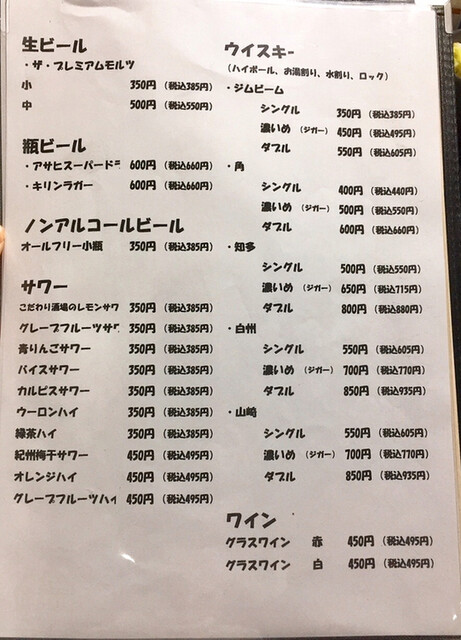 生ビール
・ザ・プレミアムモルツ
小 350円 (税込385円)
中 500円 (税込550円)
瓶ビール
・アサヒスーパードラ 600円 (税込660円)
・キリンラガー 600円 (税込660円)
ノンアルコールビール
オールフリー小瓶 350円 (税込385円)
サワー
こだわり酒場のレモンサワ 350円 (税込385円)
グレープフルーツサワ 350円 (税込385円)
青りんごサワー 350円 (税込385円)
バイスサワー 350円 (税込385円)
カルピスサワー 350円 (税込385円)
ウーロンハイ 350円 (税込385円)
緑茶ハイ 350円 (税込385円)
紀州梅干サワー 450円 (税込495円)
オレンジハイ 450円 (税込495円)
グレープフルーツハイ 450円 (税込495円)
ウイスキー
(ハイボール、お湯割り、水割り、ロック)
・ジムビーム
シングル 350円 (税込385円)
濃いめ (ジガー) 450円 (税込495円)
ダブル 550円 (税込605円)
・角
シングル 400円 (税込440円)
濃いめ (ジガー) 500円 (税込550円)
ダブル 600円 (税込660円)
・知多
シングル 500円 (税込550円)
濃いめ (ジガー) 650円 (税込715円)
ダブル 800円 (税込880円)
・白州
シングル 550円 (税込605円)
濃いめ (ジガー) 700円 (税込770円)
ダブル 850円 (税込935円)
・山崎
シングル 550円 (税込605円)
濃いめ (ジガー) 700円 (税込770円)
ダブル 850円 (税込935円)
ワイン
グラスワイン 赤 450円 (税込495円)
グラスワイン 白 450円 (税込495円)